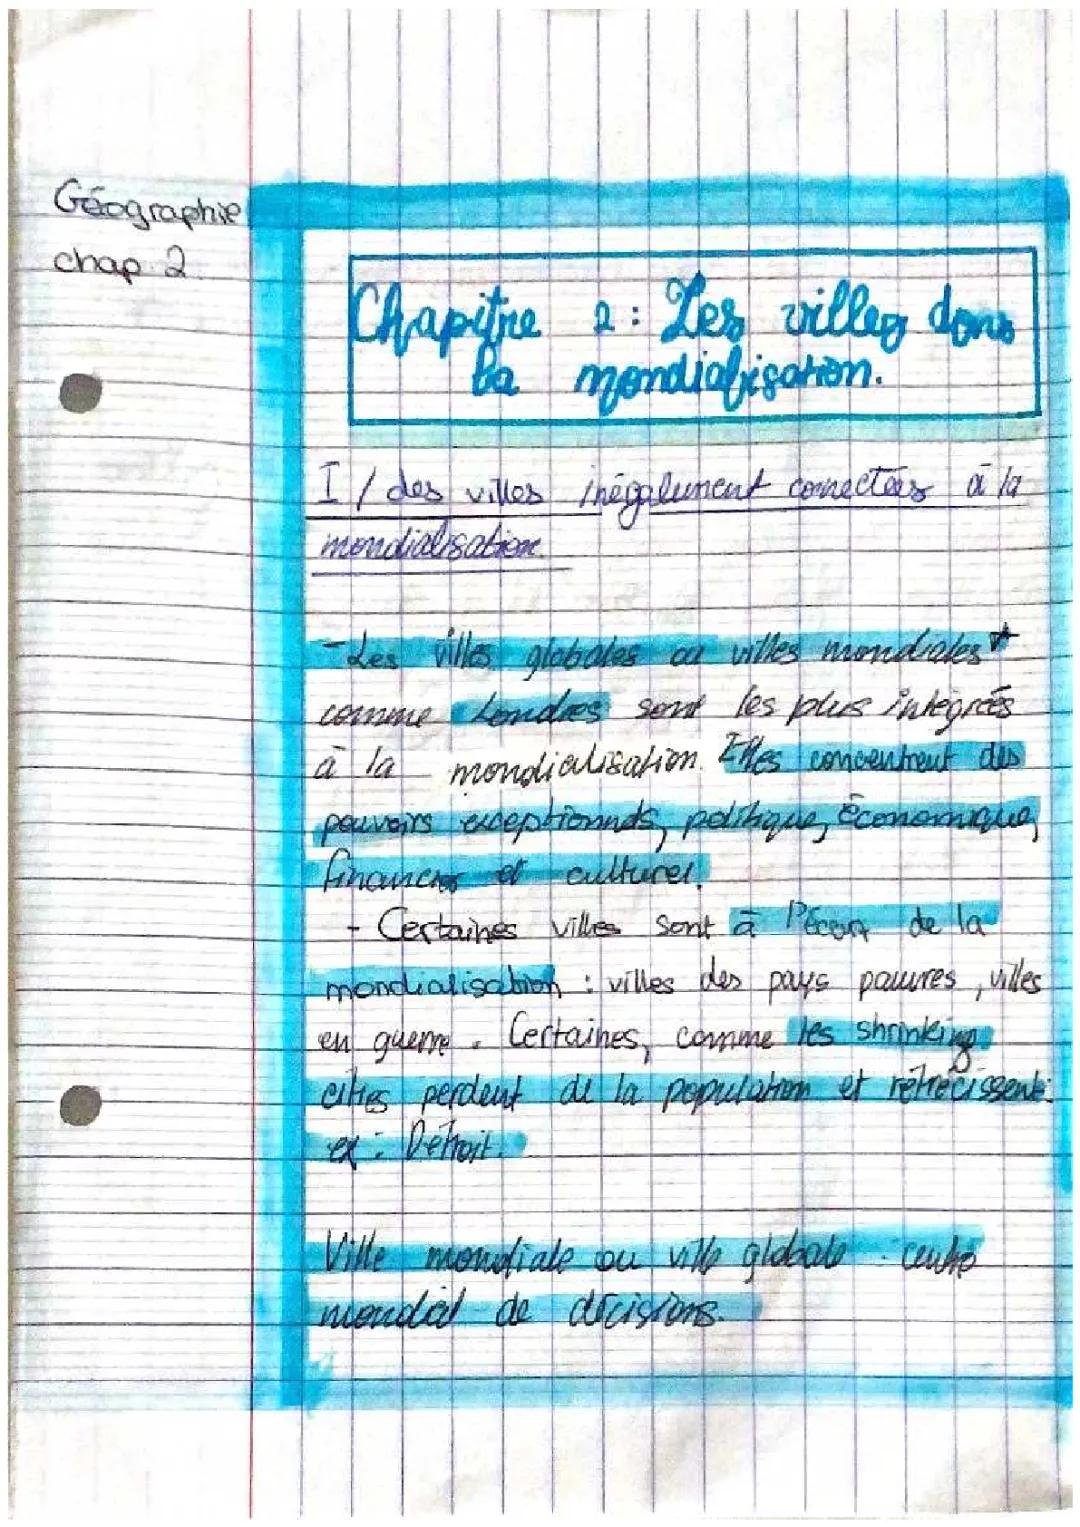 Géographie
chap 2
Chapitre 2 : Les villes dans
la mondialisation.
I / des villes inégalement connectées à la
mondialisation
- Les villes globales ou villes mondiales*
comme Londres sont les plus intégrées
à la mondialisation. Elles concentrent des
pouvoirs exceptionnels, politique, économique,
financier et culturel.
- Certaines villes sont à l'écart de la
mondialisation : villes des pays pauvres, villes
en guerre. Certaines, comme les shrinking
cities perdent de la population et rétrécissent.
ex : Détroit.
Ville mondiale ou ville globale : centre
mondial de décisions.